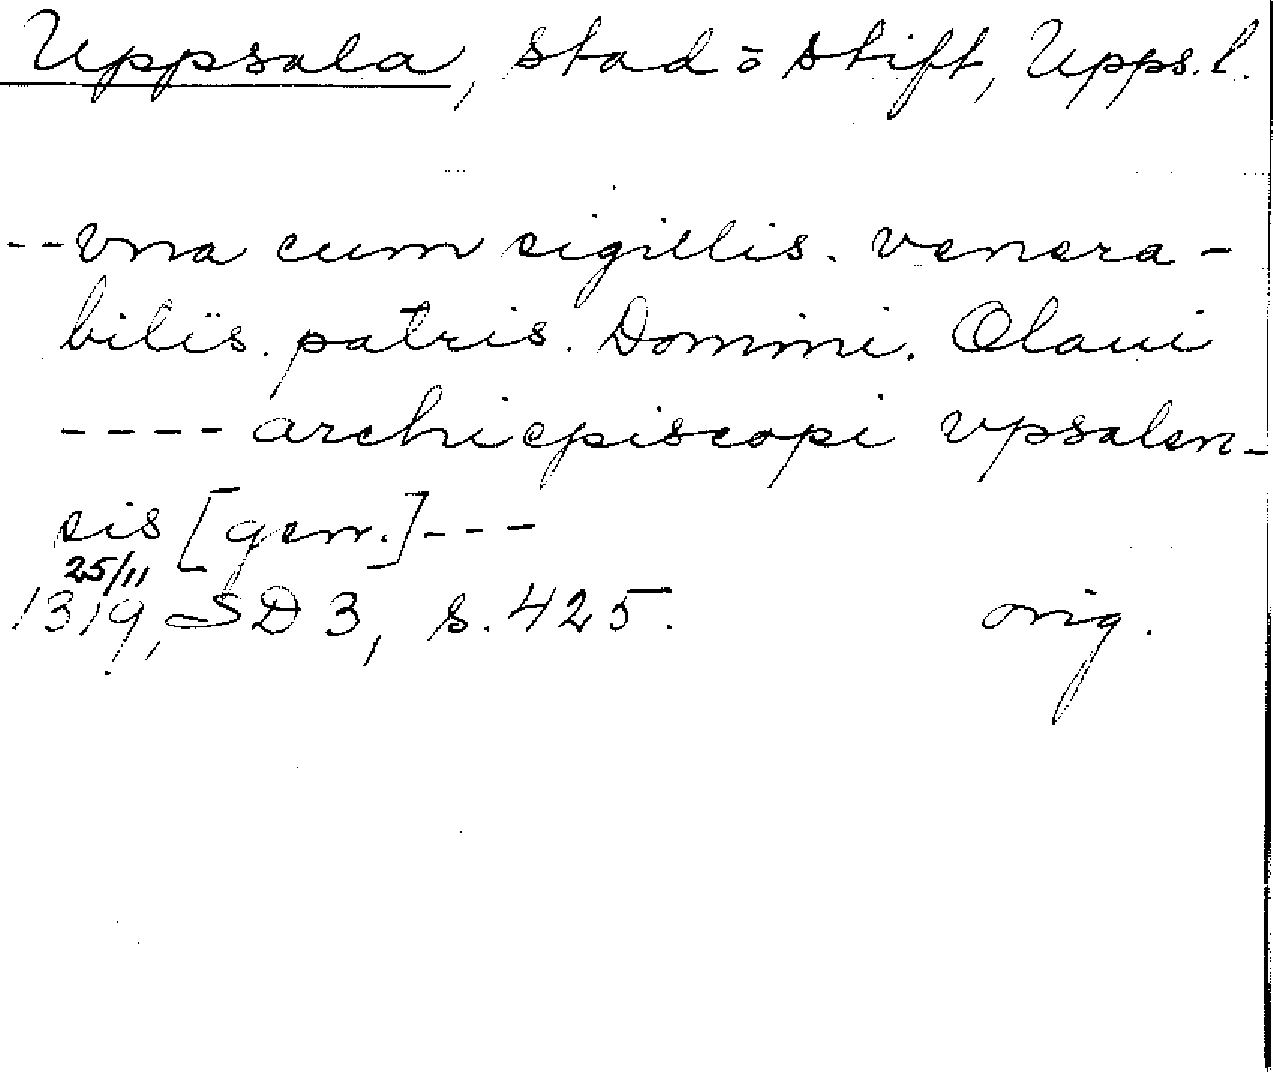 Uppsala, stad o stift, Upps. l.
--vna cum sigillis. venera-
biliis. patris. Domini. Olaui
---- archiepiscopi vpsalen-
sis [gen.]---
25/11
1319, SD 3, s. 425. orig.